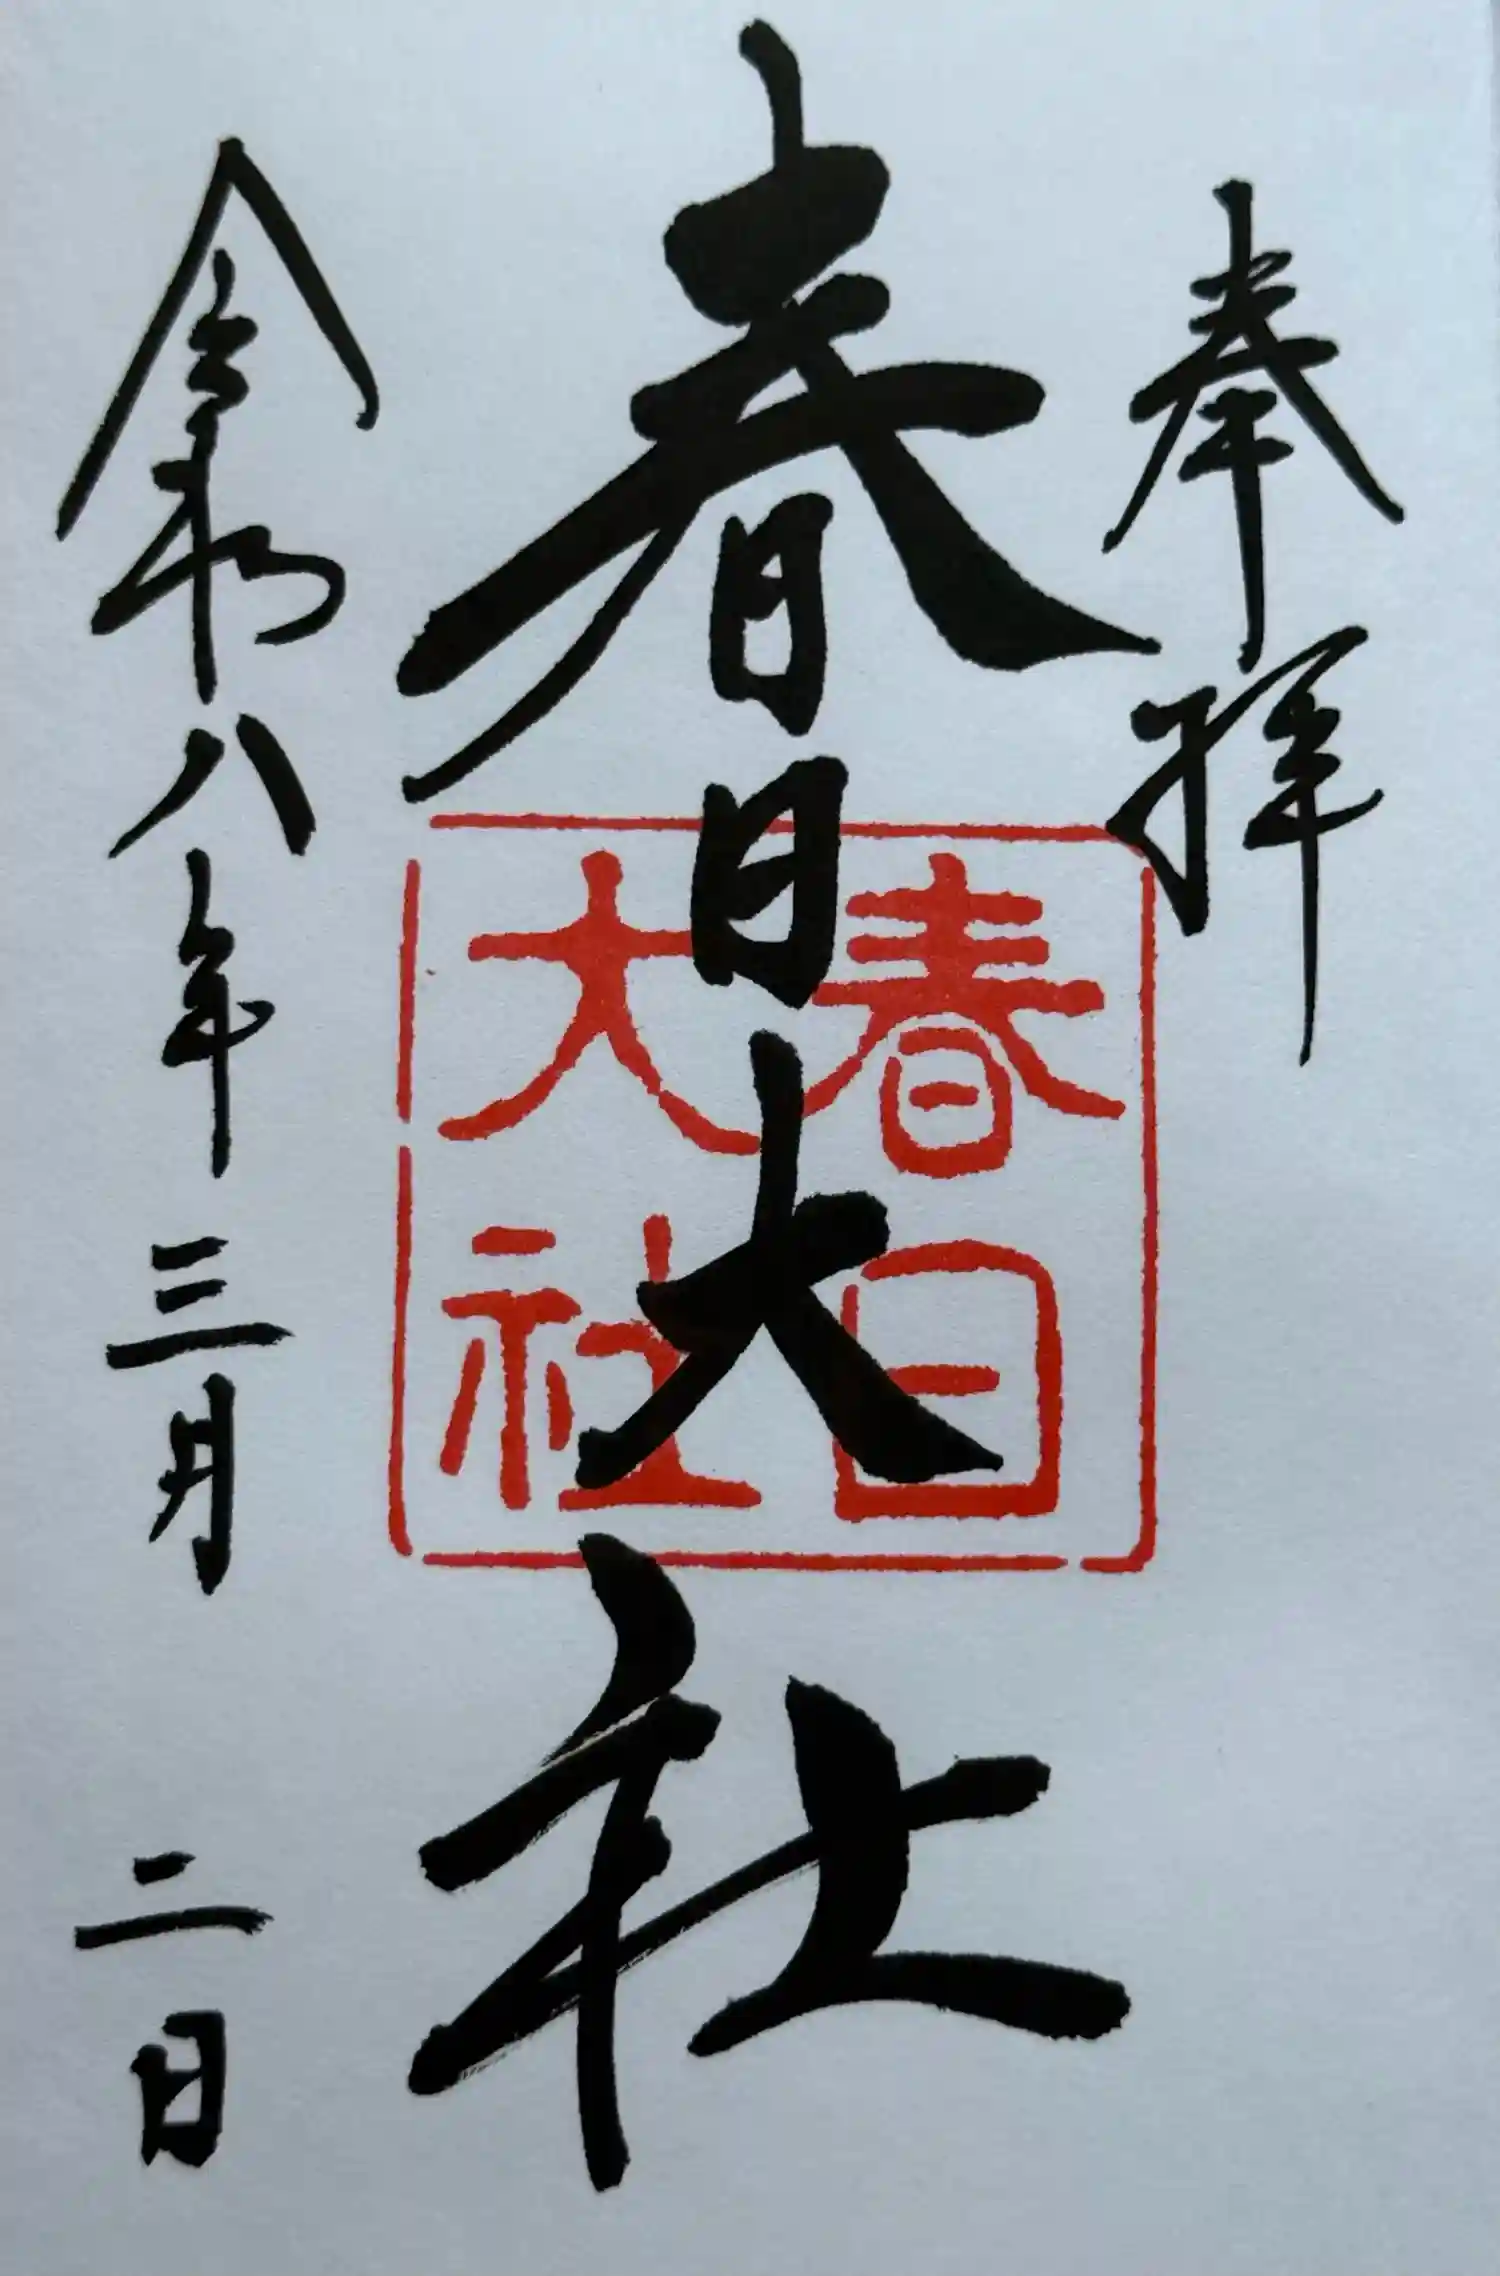 奉拝
春日大社
春日大社
令和八年三月二日